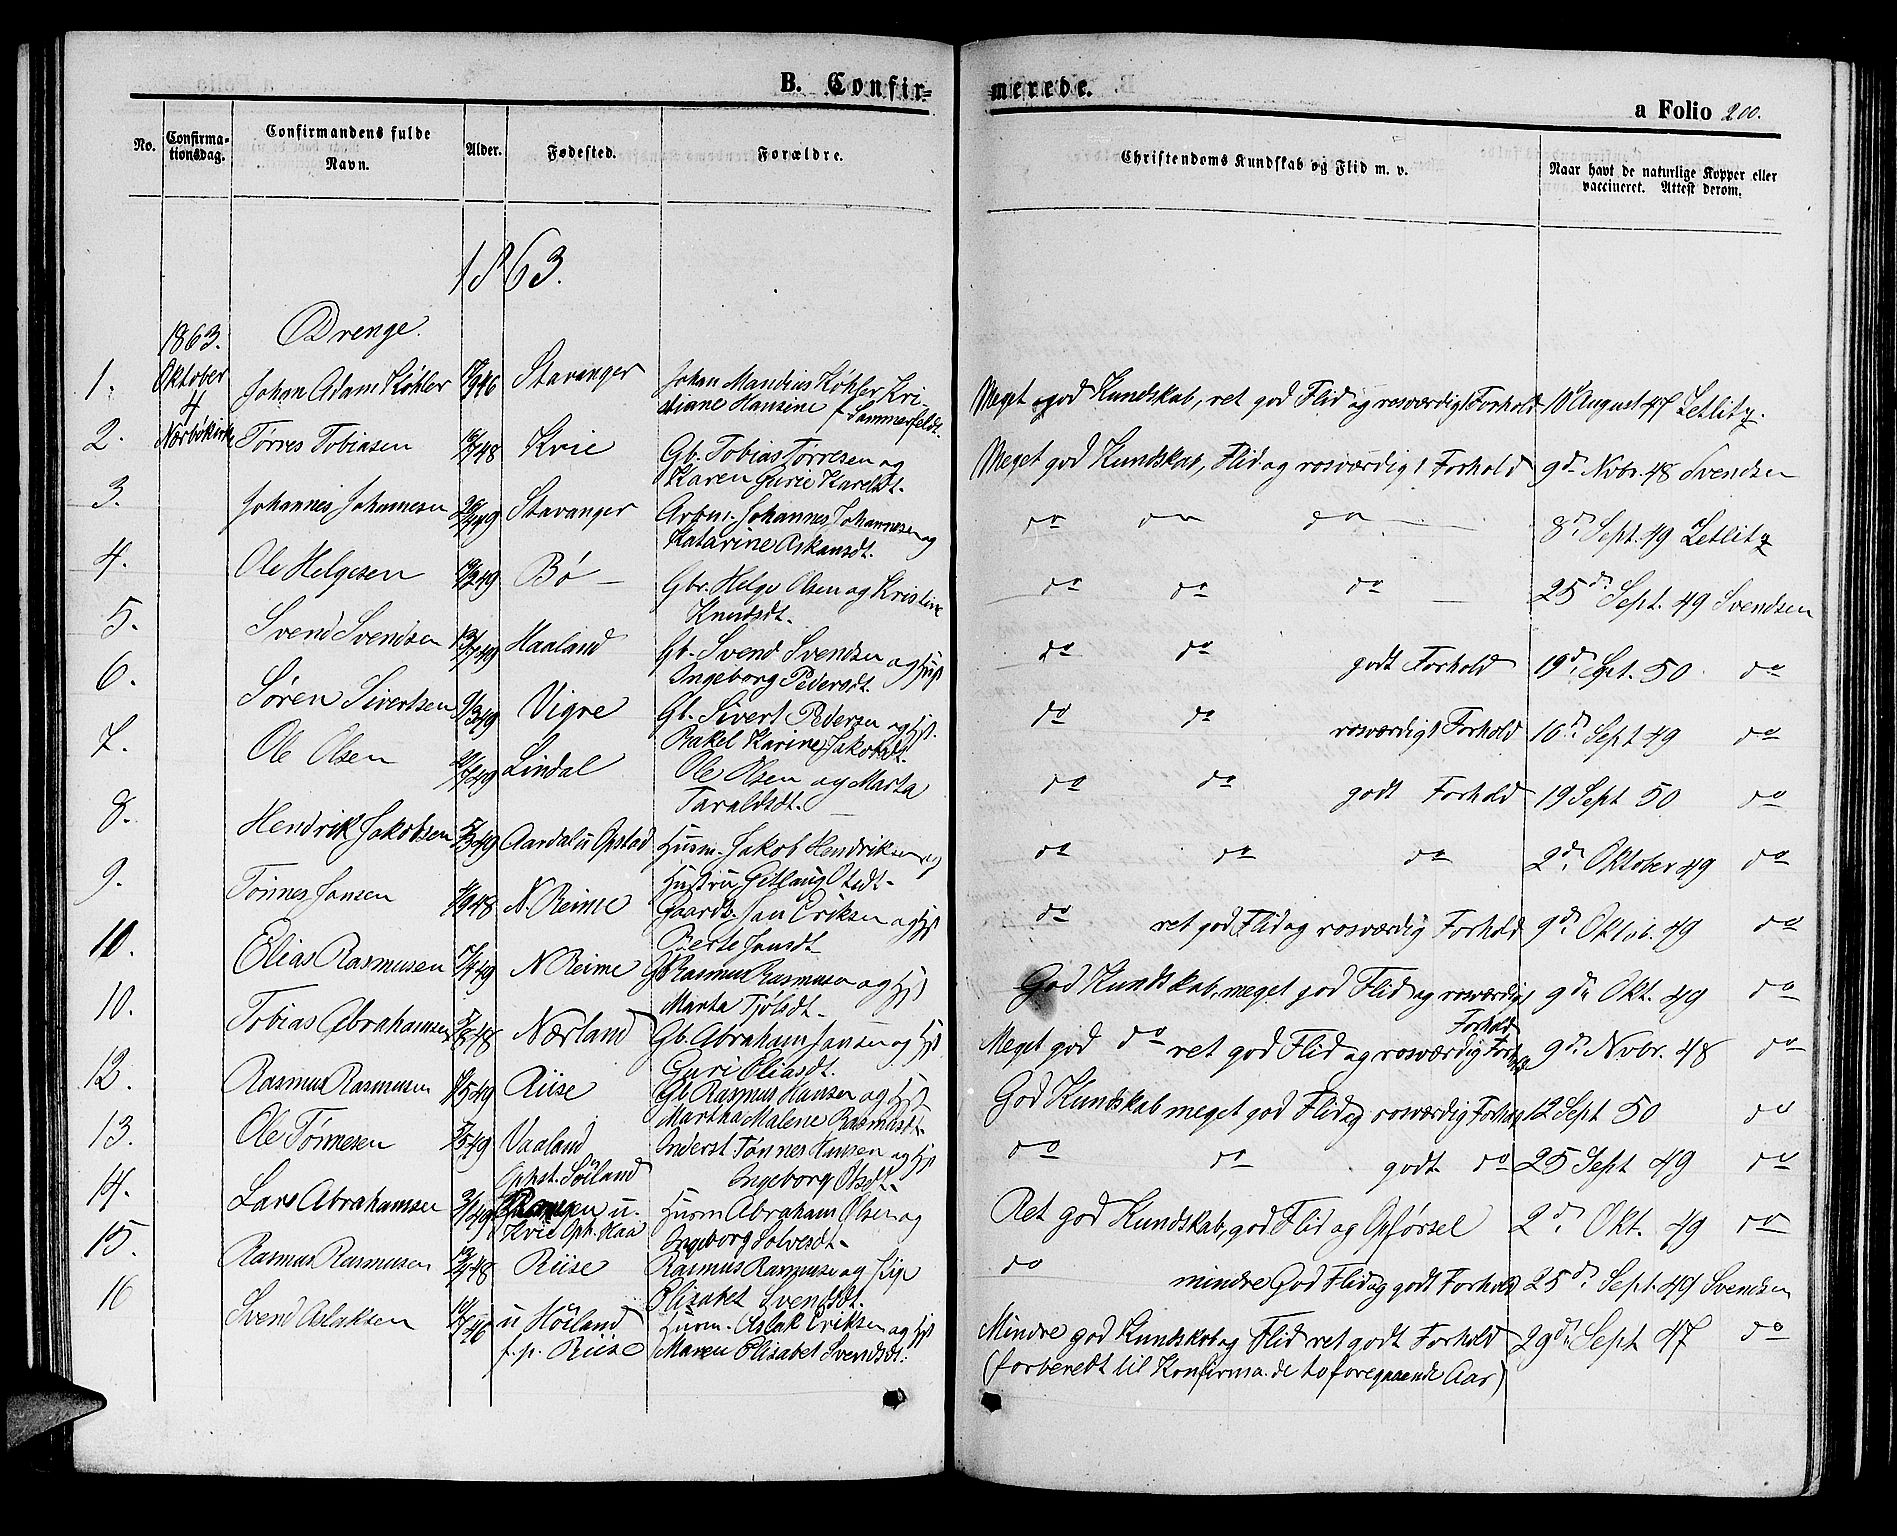 B. Confir-
merede.
a Folio 200.
No.
Confirma-
tionsdag.
Confirmandens fulde
Navn.
Alder.
Fødested.
Forældre.
Christendoms Kundskab og Flid m. v.
Naar havt de naturlige Kopper eller
vaccineret. Attest derom.
1863.
1863.
Drenge.
1. Oktober Johan Adam Køhler Stavanger Johan Mandius Køhler Kri-
4 stiane Hansine f. Sømmerfeldt.
Meget god Kundskab, ret god Flid og rosværdigt Forhold 10d August 47 Zetlitz.
2. Nærbøkirke Torres Tobiasen Kvie Gb. Tobias Torresen og
Karen Gurie
Meget god Kundskab, Flid og rosværdigt Forhold 9de Novbr. 48 Svendsen
3. Johannes Johannesen Stavanger Johannes Johannesen og
Katarine
do do do 8d Sept. 49 Zetlitz
4. Ole Helgesen Bø Gbr. Helge Olsen og Kristine
Knudsdt.
do do do 25d Sept. 49 Svendsen
5. Svend Svendsen Haaland Gb. Svend Svendsen og Hust
Ingeborg Pedersdt.
do do godt Forhold 19d Sept. 50 do
6. Søren Sivertsen Vigre Gb. Sivert Pedersen og Hust.
Rakel Karine Jakobsdt.
do do rosværdigt Forhold 10d Sept 49 do
7. Ole Olsen Lindal Ole Olsen og Marta
Taraldsdt.
do do godt Forhold 19 Sept 50 do
8. Hendrik Jakobsen Aardal u Opstad Husm. Jakob Hendriksen og
Hustru Gitlaug
do do do 2d Oktober 49 do
9. Tønnes Jansen N. Reime Gaardb. Jan Eriksen og Hust
Berte Jansdt
do ret god Flid og rosværdig Forhold 9d Oktob. 49 do
10. Elias Rasmusen N Reime Gb Rasmus Rasmusen og Hust
Marta
God Kundskab, meget god Flid og rosværdigt 9de Okt. 49 do
Forhold
10. Tobias Abrahamsen Nærland Gb. Abraham Jansen og Hust
Guri Eliasdt.
Meget god do ret god Flid og rosværdig 9d Novbr. 48 do
12. Rasmus Rasmusen Riise Gb Rasmus Hansen og Hust
Martha Malene Rasmusdt
God Kundskab meget god Flid og rosværdig Forhold 12 Sept 50 do
13. Ole Tønnesen Vaaland Inderst. Tønnes Hansen og Hust
Ophst. Søiland Ingeborg
do do godt do 25 Sept 49 do
14. Lars Abrahamsen u. Husm Abraham Olsen og
Kvie Oph. Haa Ingeborg
Ret god Kundskab, god Flid og Opførsel 2d Okt. 49 do
15. Rasmus Rasmusen Riise Rasmus Rasmusen og
Elisabet Svendsdt.
do mindre God Flid og godt Forhold 25d Sept. 49 Svendsen
16 Svend Aslaksen u Høiland Husm. Aslak Eriksen og Hust
f. p. Riise Maren Elisabet Svendsdt.
Mindre god Kundskab og Flid ret godt Forhold 29de Sept 47 do
(forberedt til Konfirma. de to foregaaende Aar)